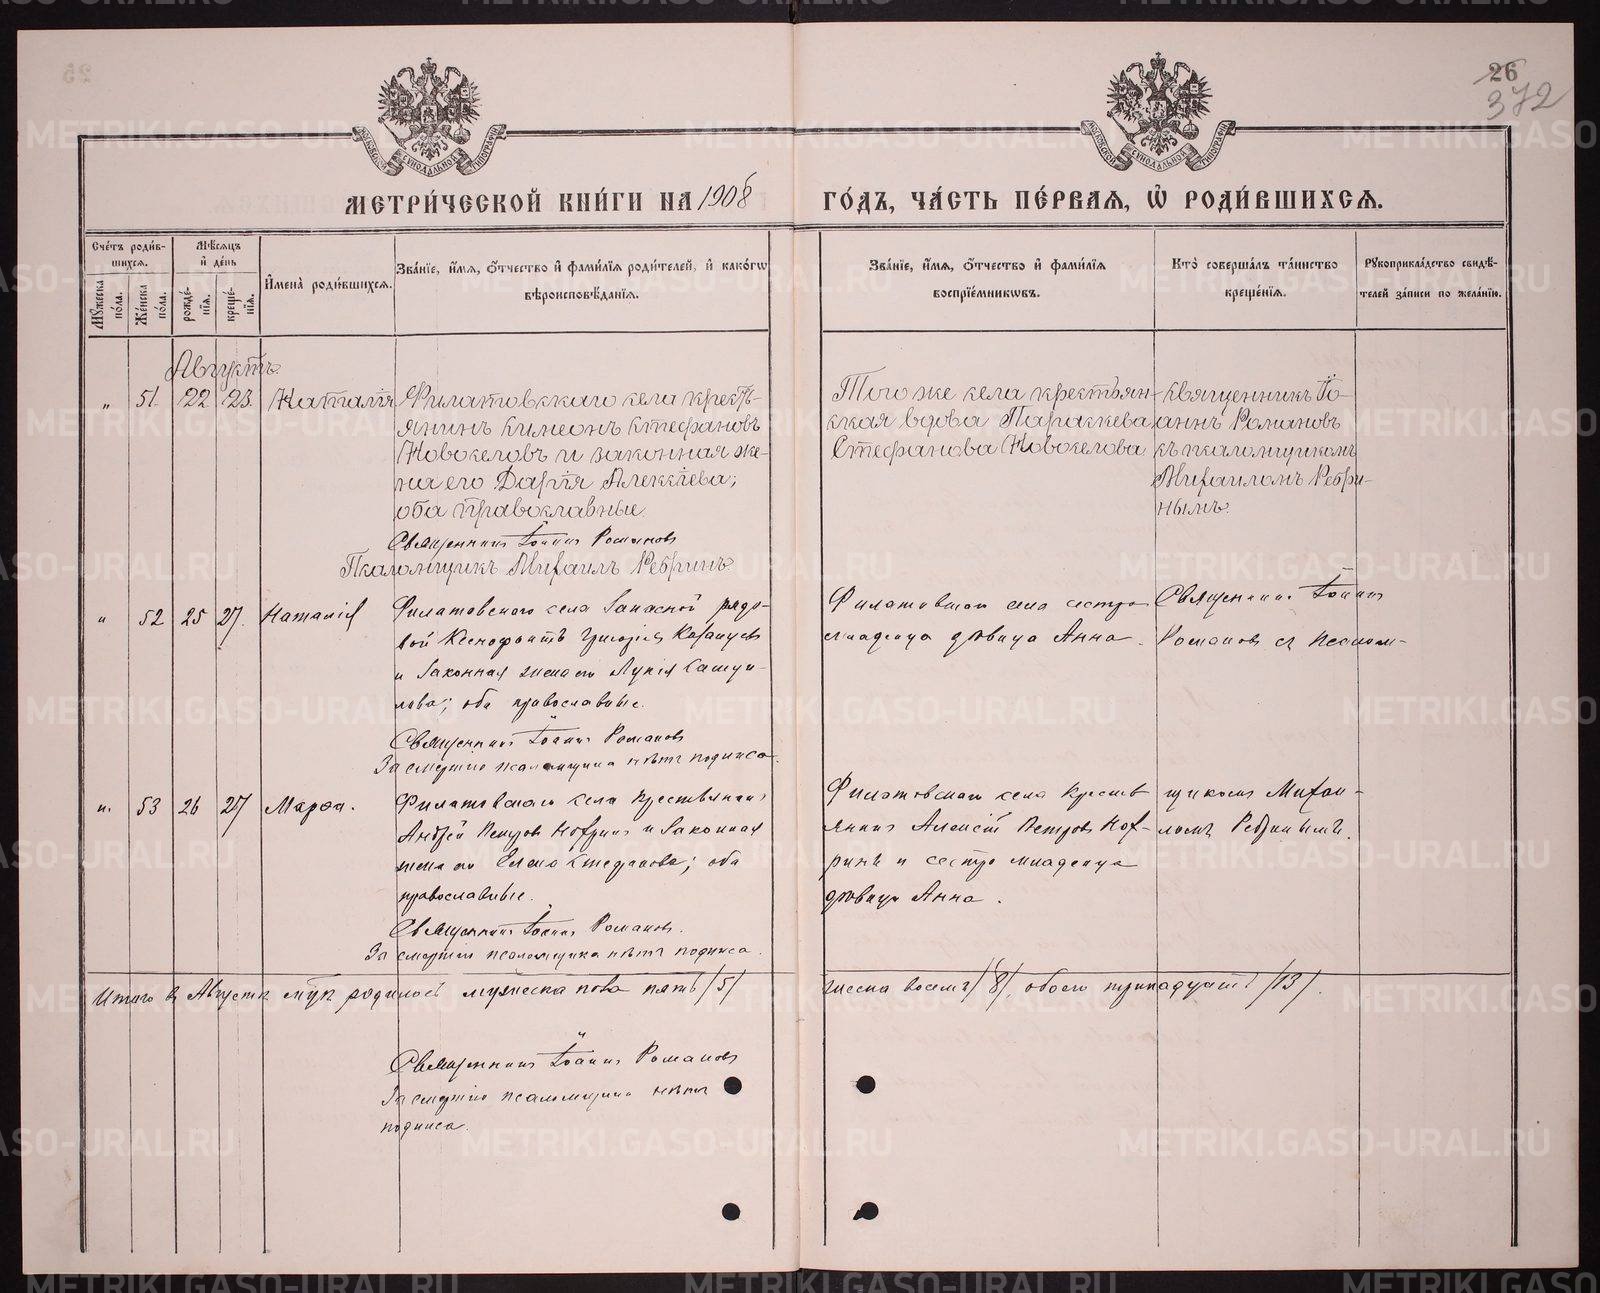 26
372
МЕТРИ́ЧЕСКОЙ КНИ́ГИ НА 1908 ГО́ДЪ, ЧА́СТЬ ПЕ́РВАЯ, Ѽ РОДИ́ВШИХСЯ.
Сче́тъ роди́в-
шихся.
Мѣ́сяцъ
и҆ де́нь
Мꙋ́жеска
по́ла.
Же́нска
по́ла.
рожде́-
нїѧ.
креще́-
нїѧ.
И҆мена̀ роди́вшихсѧ.
Зва́нїе, и҆́мѧ, ѻ҆́тчество и҆ фами́лїѧ роди́телей, и҆ како́гѡ
вѣроисповѣ́данїѧ.
Зва́нїе, и҆́мѧ, ѻ҆́тчество и҆ фами́лїѧ
воспрїе́мникѡвъ.
Кто̀ соверша́лъ та́инство
креще́нїѧ.
Рꙋкоприкла́дство свидѣ́-
телей за́писи по жела́нїю.
Августъ.
„ 51. 22 23. Наталія
Филатовскаго села кресть-
янинъ Симеонъ Стефановъ
Новоселовъ и законная же-
на его Дарія Алексіева;
оба православные.
Священникъ Іоаннъ Романовъ
Псаломщикъ Михаилъ Ребринъ.
Того же села крестьян-
ская вдова Параскева
Стефанова Новоселова
Священникъ Іо-
аннъ Романовъ
съ псаломщикомъ
Михаиломъ Ребри-
нымъ.
„ 52 25 27. Наталія
Филатовскаго села Запасной рядо-
вой Ксенофонтъ Григорьевъ
и Законная жена его Лукія Самуи-
лова; оба православные.
Священникъ Іоаннъ Романовъ
За смертію псаломщика нѣтъ подписа.
Филатовскаго села сестра
младенца дѣвица Анна.
Священникъ Іоаннъ
Романовъ съ псалом-
„ 53 26 27 Марфа.
Филатовскаго села Крестьянинъ
Андрей Петровъ и Законная
жена его Елена Стефанова; оба
православные.
Священникъ Іоаннъ Романовъ.
За смертію псаломщика нѣтъ подписа.
Филатовскаго села Кресть
янинъ Алексій Петровъ
и сестра младенца
дѣвица Анна.
щикомъ Михаи-
ломъ Ребринымъ.
Итого въ Августѣ родилось мужеска пола пять /5/ женска восемь /8/, обоего тринадцать /13/.
Священникъ Іоаннъ Романовъ
За смертію псаломщика нѣтъ
подписа.
METRIKI.GASO-URAL.RU